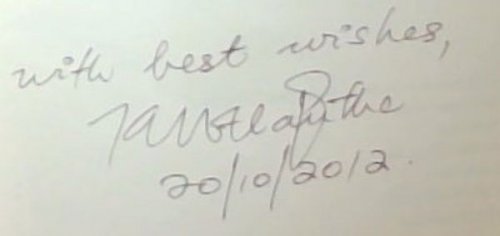 with best wishes,
20/10/2012.